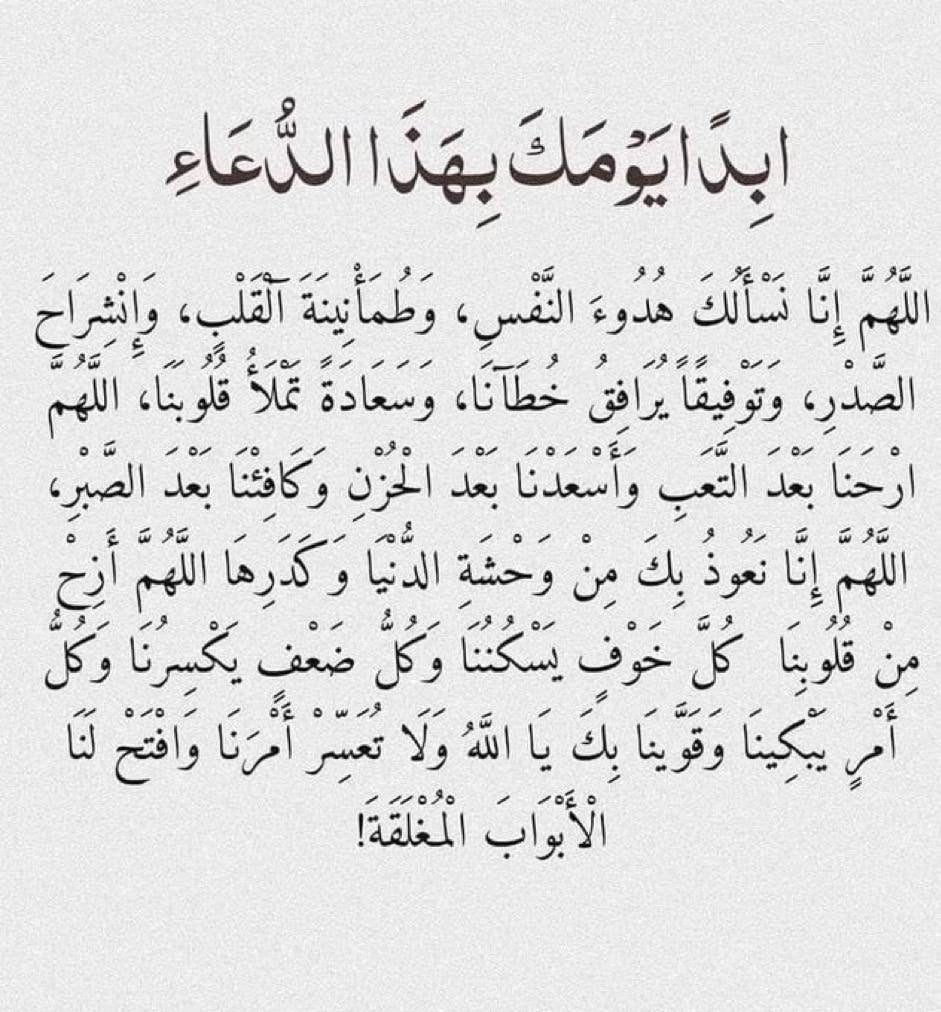 ابِدًا يَوْمَكَ بِهَذَا الدُّعَاءِ
اللَّهُمَّ إِنَّا نَسْأَلُكَ هُدُوءَ النَّفْسِ، وَطُمَأْنِينَةَ الْقَلْبِ، وَإِنْشِرَاحَ
الصَّدْرِ، وَتَوْفِيقًا يُرَافِقُ خُطَآنَا، وَسَعَادَةً تَمْلَأُ قُلُوبَنَا، اللَّهُمَّ
ارْحَنَا بَعْدَ التَّعَبِ وَأَسْعَدْنَا بَعْدَ الْحُزْنِ وَكَافِئْنَا بَعْدَ الصَّبْرِ،
اللَّهُمَّ إِنَّا نَعُوذُ بِكَ مِنْ وَحْشَةِ الدُّنْيَا وَكَدَرِهَا اللَّهُمَّ أَزِحْ
مِنْ قُلُوبِنَا كُلَّ خَوْفٍ يَسْكُنُنَا وَكُلُّ ضَعْفٍ يَكْسِرُنَا وَكُلُّ
أَمْرٍ يَبْكِينَا وَقَوَّينَا بِكَ يَا اللَّهُ وَلَا تُعَسِّرْ أَمْرَنَا وَافْتَحْ لَنَا
الْأَبْوَابَ الْمُغْلَقَةَ!